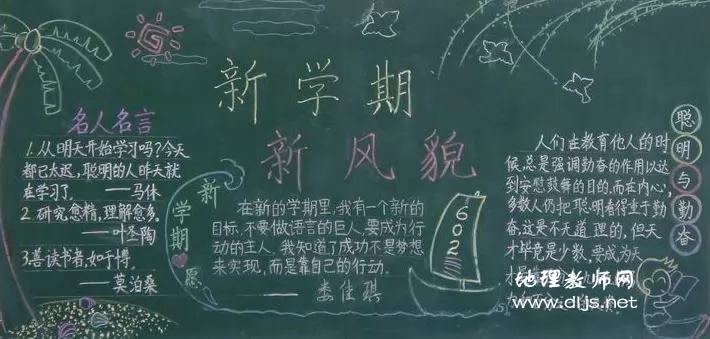 新学期
新风貌
名人名言
1.从明天开始学习吗?今天
都已太迟,聪明的人昨天就
在学习了。——马休
2.研究愈精,理解愈多。
——叶圣陶
3.善读书者,如于博。
——莫泊桑
新学期❤愿
在新的学期里,我有一个新的
目标,不要做语言的巨人,要成为行
动的主人。我知道了成功不是梦想
来实现,而是靠自己的行动。
——娄佳琪
602
聪明与勤奋
人们在教育他人的时
候,总是强调勤奋的作用以达
到安慰鼓舞的目的,而在内心,
多数人仍把聪明看得重于勤
奋,这是不无道理的,但天
才毕竟是少数,要成为天
地理教师网
www.dljs.net